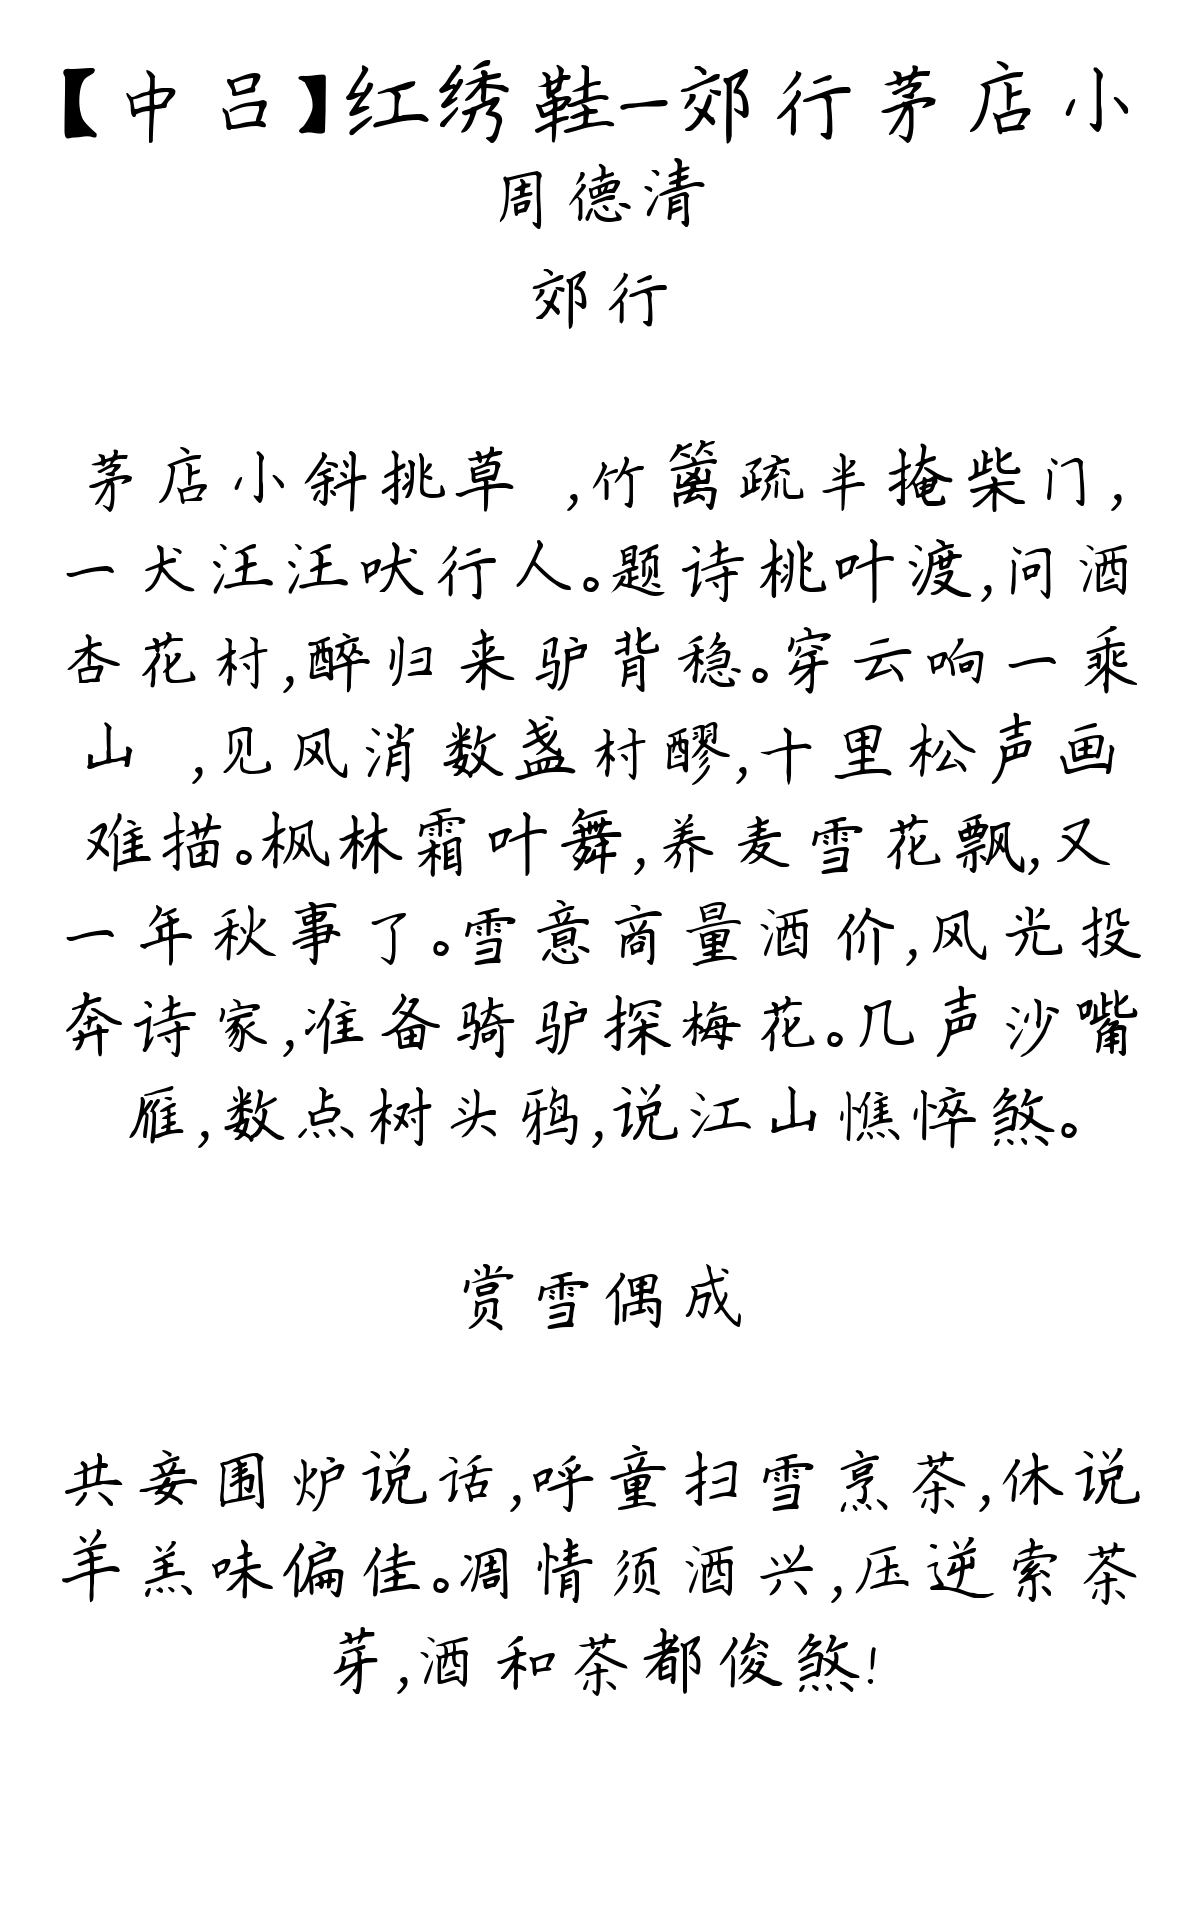 【中吕】红绣鞋-郊行茅店小
周德清
郊行
茅店小斜挑草 ,竹篱疏半掩柴门,
一犬汪汪吠行人。题诗桃叶渡,问酒
杏花村,醉归来驴背稳。穿云响一乘
山 ,见风消数盏村醪,十里松声画
难描。枫林霜叶舞,荞麦雪花飘,又
一年秋事了。雪意商量酒价,风光投
奔诗家,准备骑驴探梅花。几声沙嘴
雁,数点树头鸦,说江山憔悴煞。
赏雪偶成
共妾围炉说话,呼童扫雪烹茶,休说
羊羔味偏佳。凋情须酒兴,压逆索茶
芽,酒和茶都俊煞!